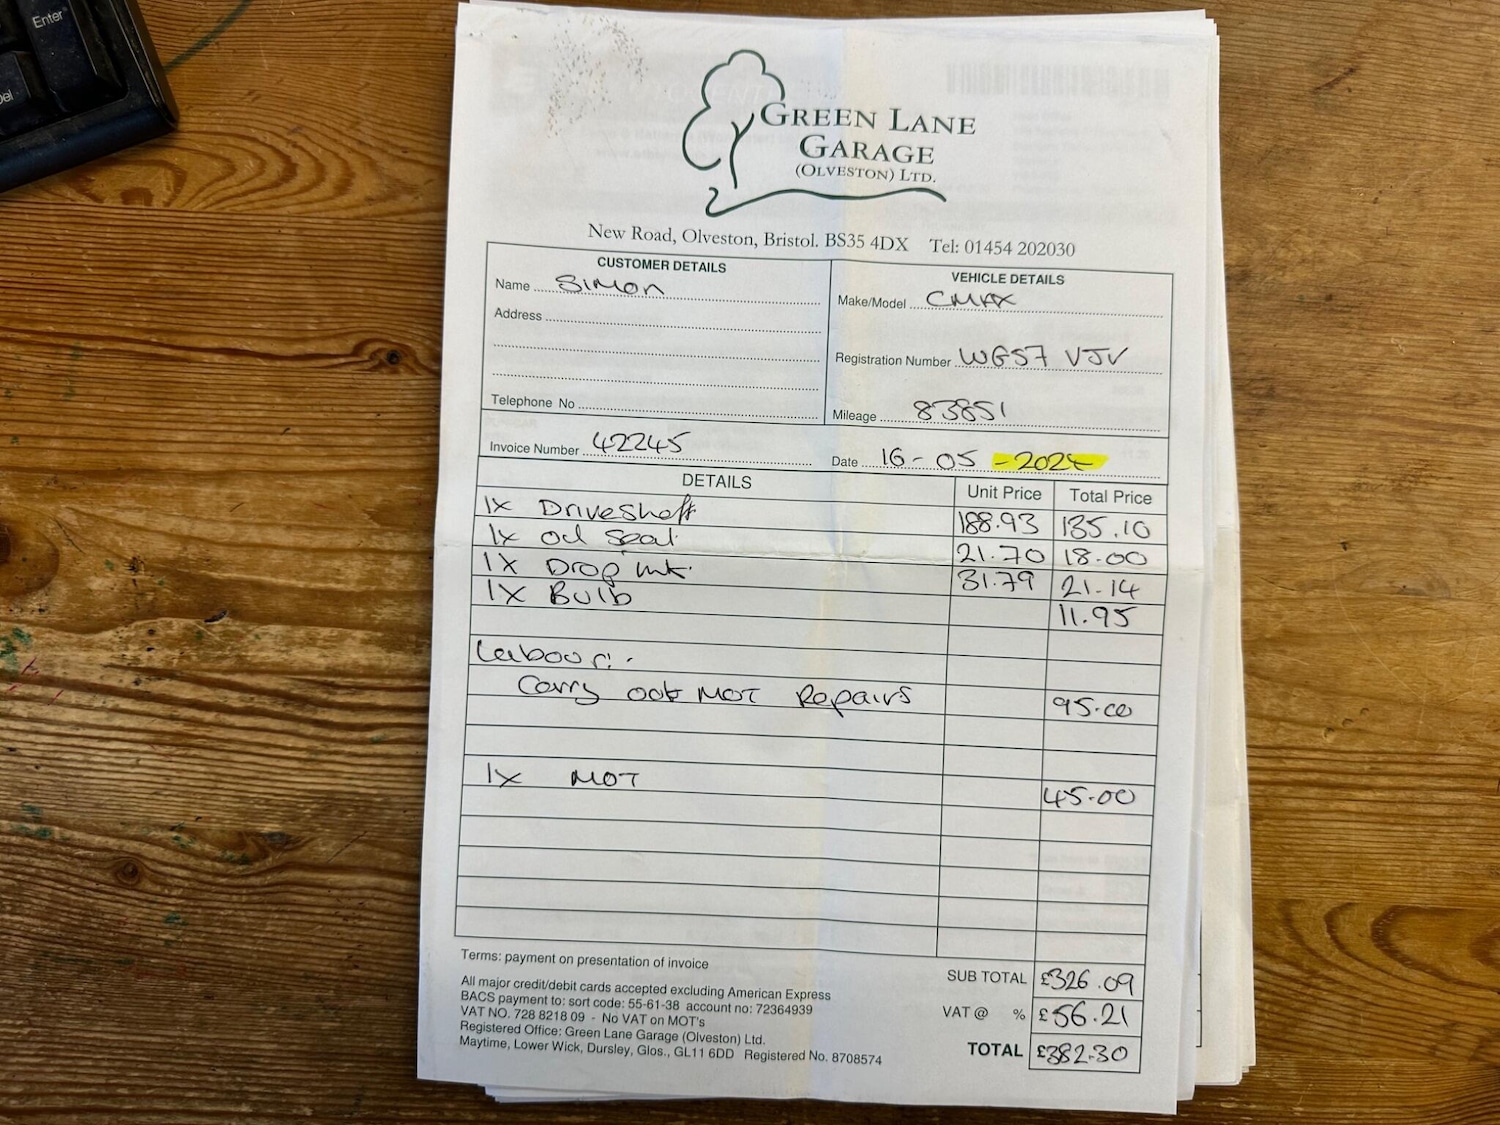 Enter
Del
GREEN LANE
GARAGE
(OLVESTON) LTD.
New Road, Olveston, Bristol. BS35 4DX Tel: 01454 202030
CUSTOMER DETAILS
Name Simon
Address
Telephone No
VEHICLE DETAILS
Make/Model CMAX
Registration Number WG57 VJV
Mileage 83851
Invoice Number 42245
Date 16-05-2024
DETAILS Unit Price Total Price
1x Driveshaft 188.93 135.10
1x oil seal 21.70 18.00
1x Drop link 31.79 21.14
1x Bulb 11.95
Labour:-
Carry out MOT Repairs 95.00
1x MOT 45.00
Terms: payment on presentation of invoice
All major credit/debit cards accepted excluding American Express
BACS payment to: sort code: 55-61-38 account no: 72364939
VAT NO. 728 8218 09 - No VAT on MOT's
Registered Office: Green Lane Garage (Olveston) Ltd.
Maytime, Lower Wick, Dursley, Glos., GL11 6DD Registered No. 8708574
SUB TOTAL £326.09
VAT @ % £56.21
TOTAL £382.30